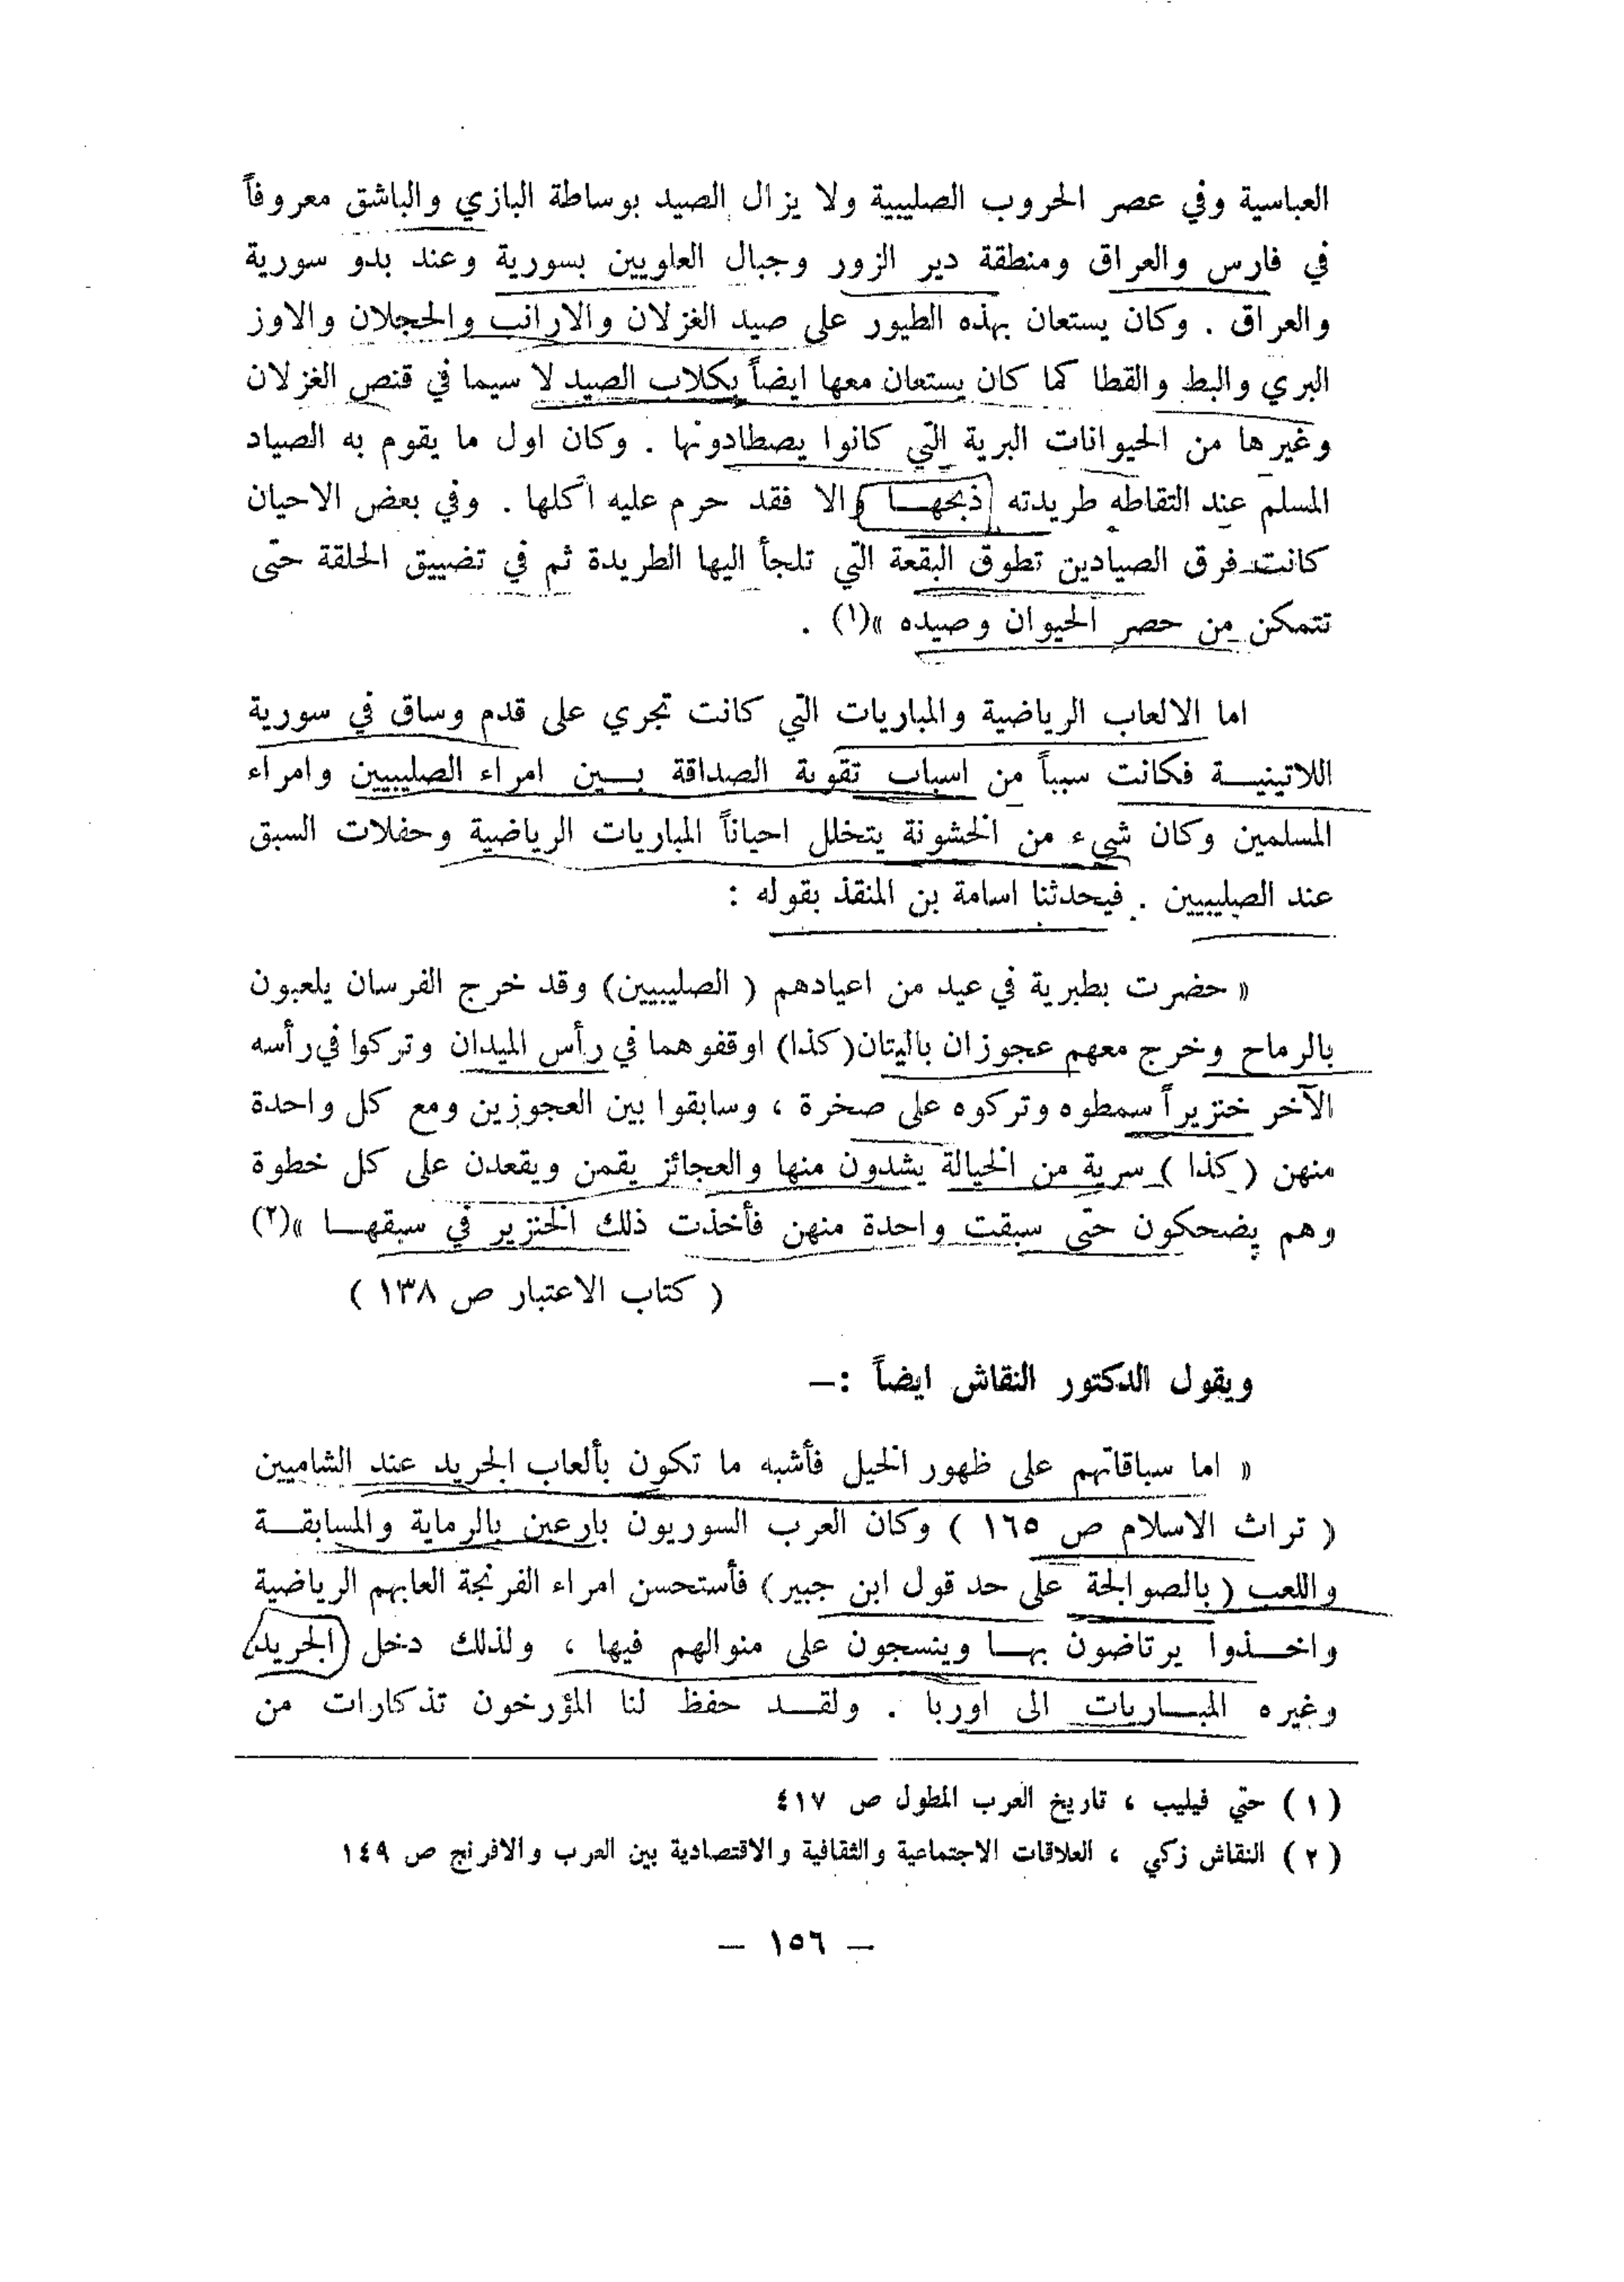 العباسية وفي عصر الحروب الصليبية ولا يزال الصيد بوساطة البازي والباشق معروفاً
في فارس والعراق ومنطقة دير الزور وجبال العلويين بسورية وعند بدو سورية
والعراق . وكان يستعان بهذه الطيور على صيد الغزلان والارانب والحجلان والاوز
البري والبط والقطا كما كان يستعان معها ايضاً بكلاب الصيد لا سيما في قنص الغزلان
وغيرها من الحيوانات البرية التي كانوا يصطادونها . وكان اول ما يقوم به الصياد
المسلم عند التقاطه طريدته ذبحها والا فقد حرم عليه أكلها . وفي بعض الاحيان
كانت فرق الصيادين تطوق البقعة التي تلجأ اليها الطريدة ثم في تضييق الحلقة حتى
تتمكن من حصر الحيوان وصيده »(١) .
اما الالعاب الرياضية والمباريات التي كانت تجري على قدم وساق في سورية
اللاتينية فكانت سبباً من اسباب تقوية الصداقة بين امراء الصليبيين وامراء
المسلمين وكان شيء من الخشونة يتخلل احياناً المباريات الرياضية وحفلات السبق
عند الصليبيين . فيحدثنا اسامة بن المنقذ بقوله :
« حضرت بطبرية في عيد من اعيادهم ( الصليبيين) وقد خرج الفرسان يلعبون
بالرماح وخرج معهم عجوزان باليتان(كذا) اوقفوهما في رأس الميدان وتركوا في رأسه
الآخر خنزيراً سمطوه وتركوه على صخرة ، وسابقوا بين العجوزين ومع كل واحدة
منهن ( كذا ) سرية من الخيالة يشدون منها والعجائز يقمن ويقعدن على كل خطوة
وهم يضحكون حتى سبقت واحدة منهن فأخذت ذلك الخنزير في سبقها »(٢)
( كتاب الاعتبار ص ١٣٨ )
ويقول الدكتور النقاش ايضاً :—
« اما سباقاتهم على ظهور الخيل فأشبه ما تكون بألعاب الجريد عند الشاميين
( تراث الاسلام ص ١٦٥ ) وكان العرب السوريون بارعين بالرماية والمسابقة
واللعب ( بالصوالجة على حد قول ابن جبير) فأستحسن امراء الفرنجة العابهم الرياضية
واخذوا يرتاضون بها وينسجون على منوالهم فيها ، ولذلك دخل (الجريد)
وغيره المباريات الى اوربا . ولقد حفظ لنا المؤرخون تذكارات من
(١) حتي فيليب ، تاريخ العرب المطول ص ٤١٧
(٢) النقاش زكي ، العلاقات الاجتماعية والثقافية والاقتصادية بين العرب والافرنج ص ١٤٩
— ١٥٦ —